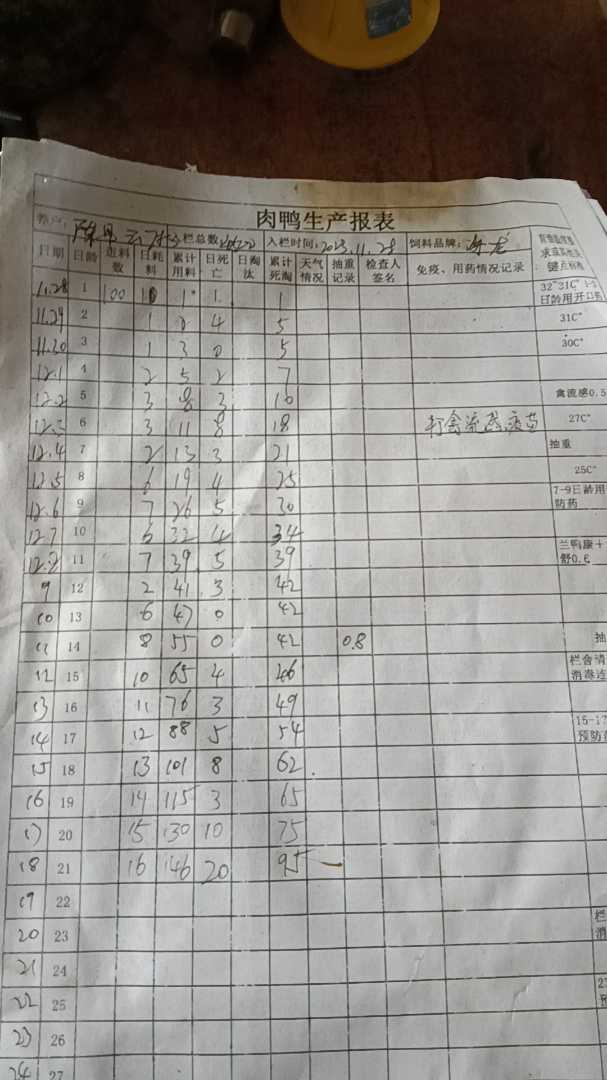 肉鸭生产报表
养户: 入栏总数: 入栏时间:2023.11.28 饲料品牌:
日期 日龄 进料数 日耗料 累计用料 日死亡 日淘汰 累计死淘 天气情况 抽重记录 检查人签名 免疫、用药情况记录 键点标准
11.28 1 100 1 1 1 32~31C° 1-3日龄用开口药
11.29 2 1 4 5 31C°
11.30 3 1 3 0 5 30C°
12.1 4 2 5 2 7
12.2 5 3 8 3 10 禽流感0.5
12.3 6 3 11 8 18 打禽流感疫苗 27C°
12.4 7 2 13 3 21 抽重
12.5 8 6 19 4 25 25C°
12.6 9 7 26 5 30 7-9日龄用防药
12.7 10 6 32 4 34
12.8 11 7 39 5 39 兰鸭康+舒0.6
9 12 2 41 3 42
10 13 6 47 0 42
11 14 8 55 0 42 0.8 抽
12 15 10 65 4 46 栏舍清消毒连
13 16 11 76 3 49
14 17 12 88 5 54 15-17预防
15 18 13 101 8 62
16 19 14 115 3 65
17 20 15 130 10 75
18 21 16 146 20 95
19 22
20 23 栏消
21 24
22 25 27
23 26
24 27